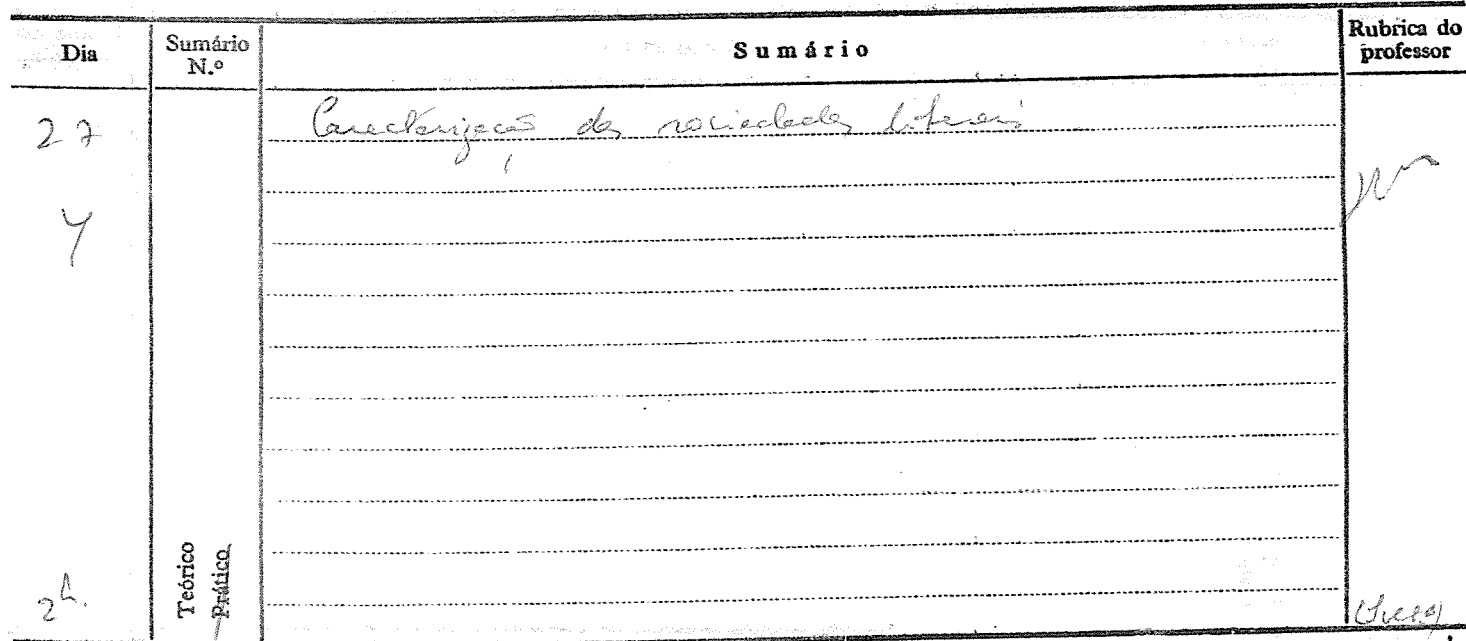 Dia
Sumário N.º
Sumário
Rubrica do professor
27
Caracterização das sociedades liberais
4
Teórico
Prático
2h.